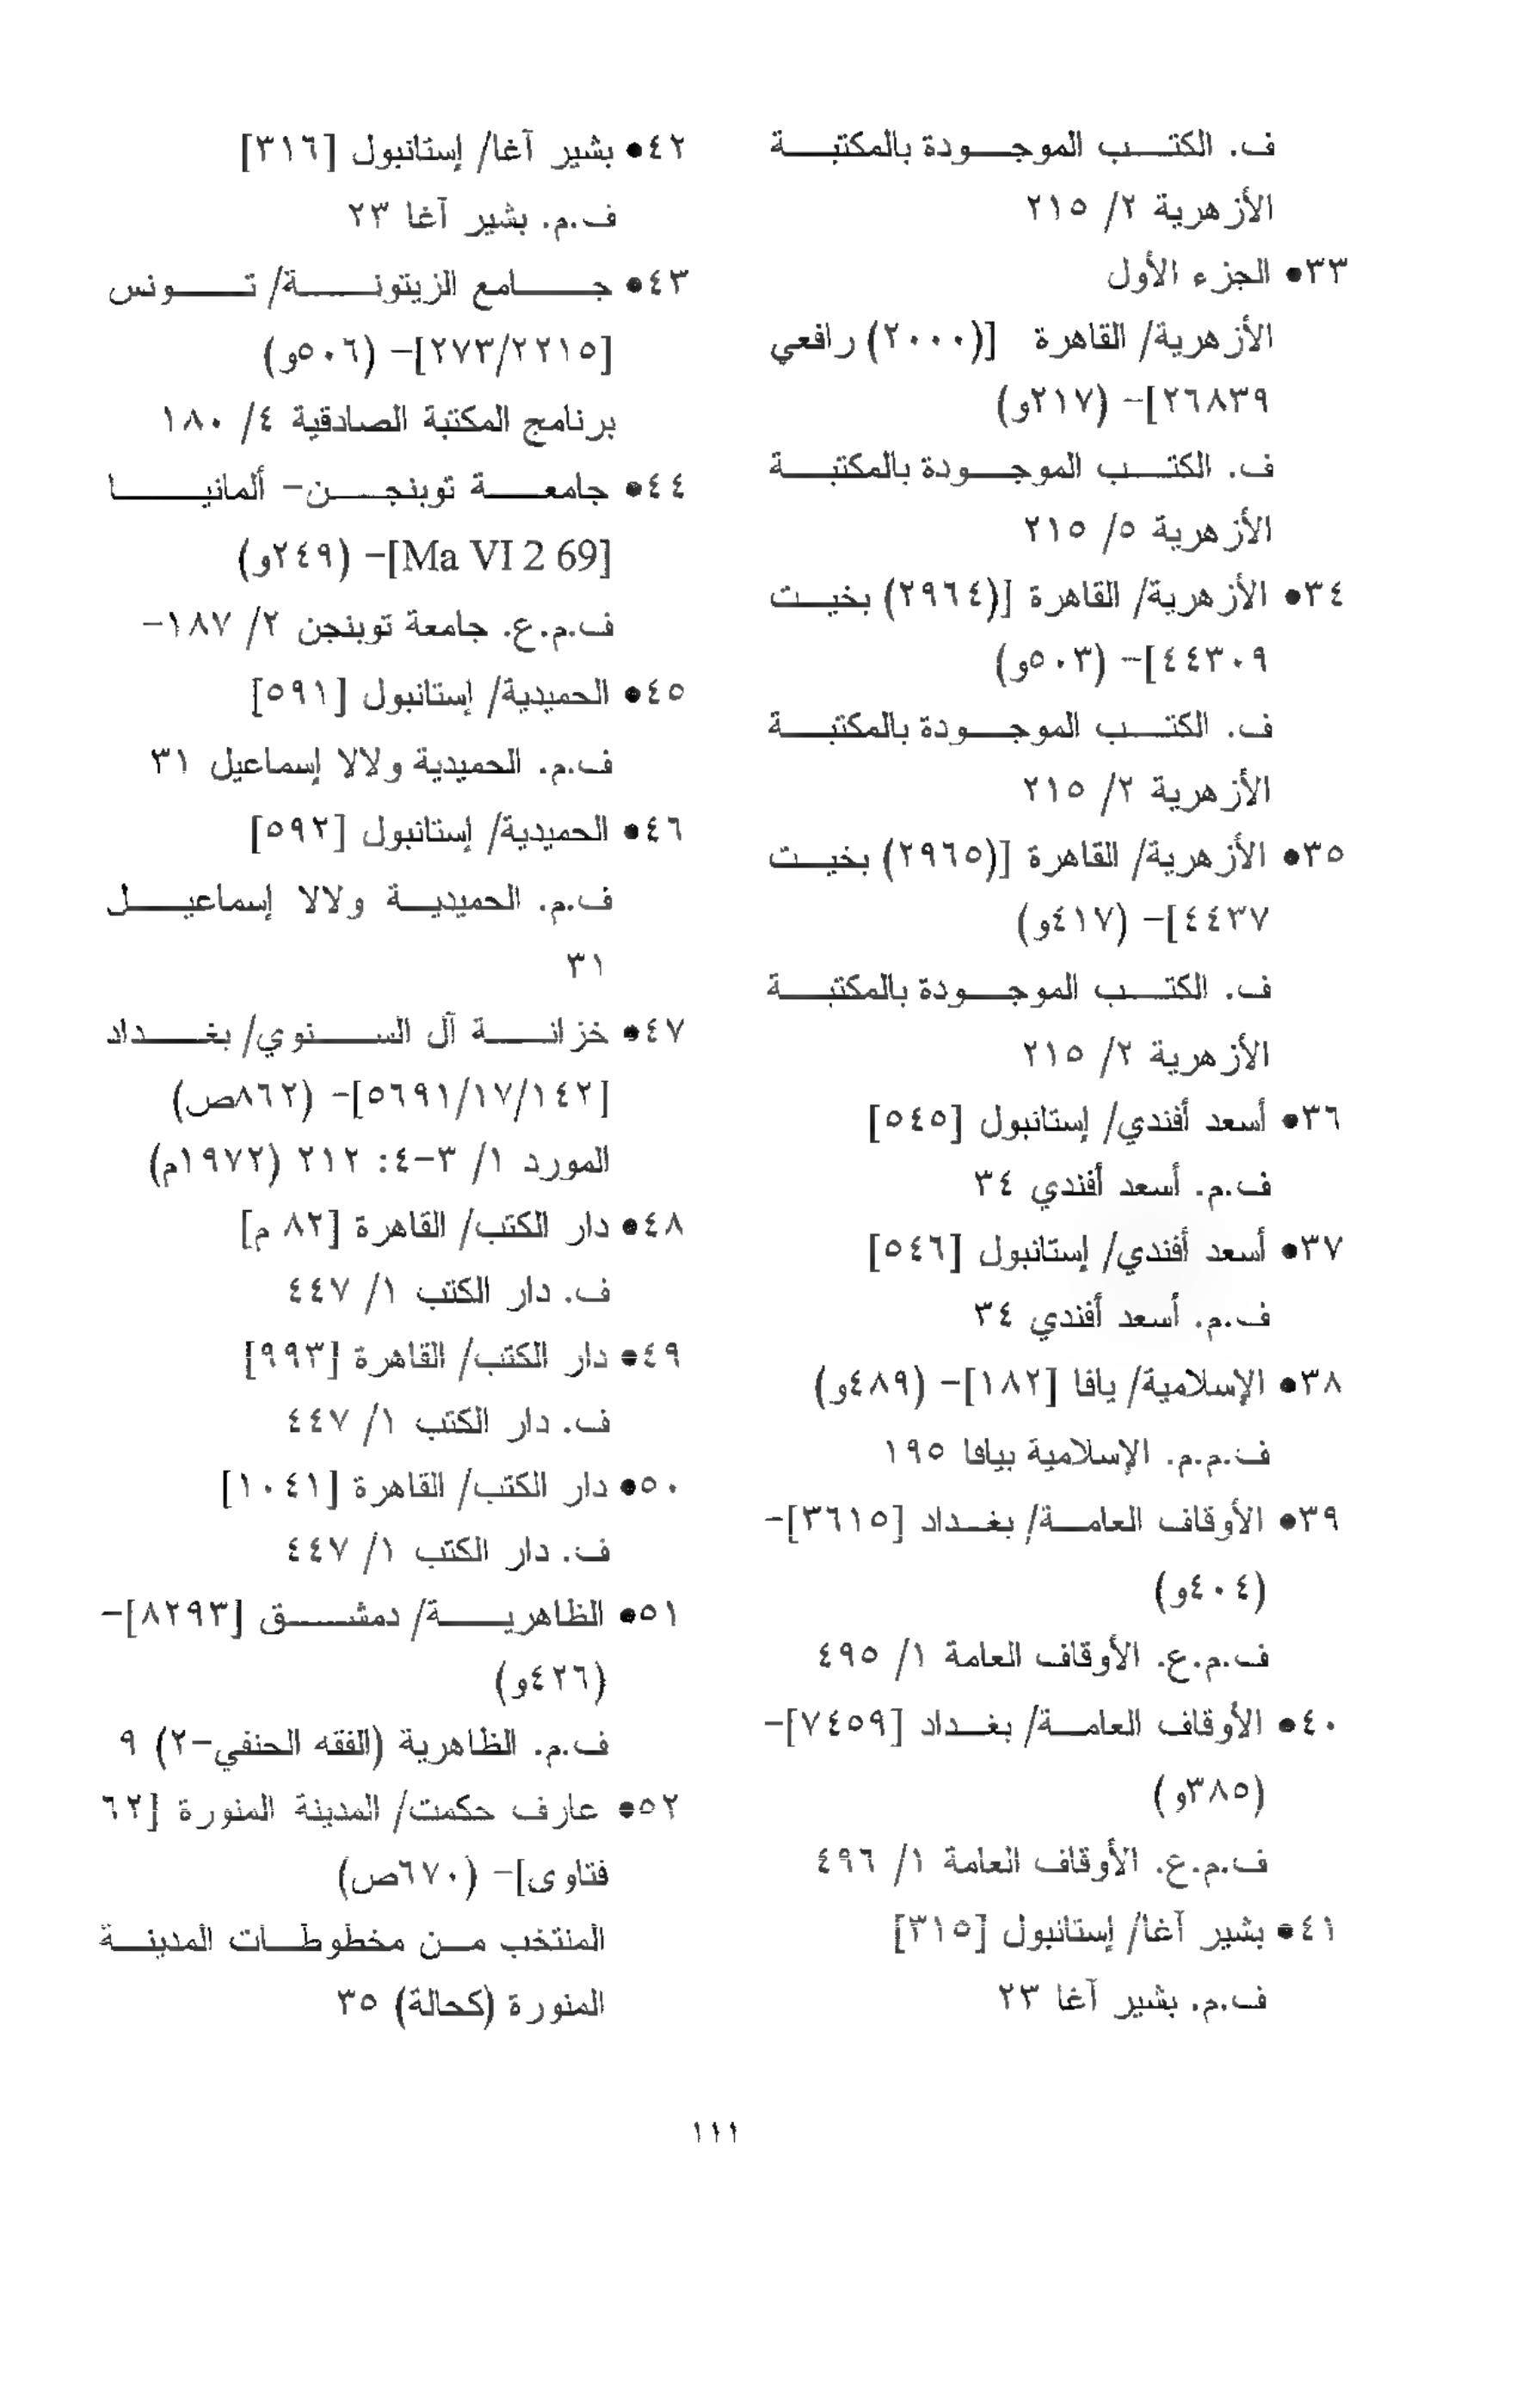 ف. الكتب الموجودة بالمكتبة
الأزهرية ٢/ ٢١٥
٣٣• الجزء الأول
الأزهرية/ القاهرة [(٢٠٠٠) رافعي
٢٦٨٣٩]- (٢١٧و)
ف. الكتب الموجودة بالمكتبة
الأزهرية ٥/ ٢١٥
٣٤• الأزهرية/ القاهرة [(٢٩٦٤) بخيت
٤٤٣٠٩]- (٥٠٣و)
ف. الكتب الموجودة بالمكتبة
الأزهرية ٢/ ٢١٥
٣٥• الأزهرية/ القاهرة [(٢٩٦٥) بخيت
٤٤٣٧]- (٤١٧و)
ف. الكتب الموجودة بالمكتبة
الأزهرية ٢/ ٢١٥
٣٦• أسعد أفندي/ إستانبول [٥٤٥]
ف.م. أسعد أفندي ٣٤
٣٧• أسعد أفندي/ إستانبول [٥٤٦]
ف.م. أسعد أفندي ٣٤
٣٨• الإسلامية/ يافا [١٨٢]- (٤٨٩و)
ف.م.م. الإسلامية بيافا ١٩٥
٣٩• الأوقاف العامة/ بغداد [٣٦١٥]-
(٤٠٤و)
ف.م.ع. الأوقاف العامة ١/ ٤٩٥
٤٠• الأوقاف العامة/ بغداد [٧٤٥٩]-
(٣٨٥و)
ف.م.ع. الأوقاف العامة ١/ ٤٩٦
٤١• بشير آغا/ إستانبول [٣١٥]
ف.م. بشير آغا ٢٣
٤٢• بشير آغا/ إستانبول [٣١٦]
ف.م. بشير آغا ٢٣
٤٣• جامع الزيتونة/ تونس
[٢٧٣/٢٢١٥]- (٥٠٦و)
برنامج المكتبة الصادقية ٤/ ١٨٠
٤٤• جامعة توبنجن- ألمانيا
[Ma VI 2 69]- (٢٤٩و)
ف.م.ع. جامعة توبنجن ٢/ ١٨٧-
٤٥• الحميدية/ إستانبول [٥٩١]
ف.م. الحميدية ولالا إسماعيل ٣١
٤٦• الحميدية/ إستانبول [٥٩٢]
ف.م. الحميدية ولالا إسماعيل
٣١
٤٧• خزانة آل السنوي/ بغداد
[٥٦٩١/١٧/١٤٢]- (٨٦٢ص)
المورد ١/ ٣-٤: ٢١٢ (١٩٧٢م)
٤٨• دار الكتب/ القاهرة [٨٢ م]
ف. دار الكتب ١/ ٤٤٧
٤٩• دار الكتب/ القاهرة [٩٩٣]
ف. دار الكتب ١/ ٤٤٧
٥٠• دار الكتب/ القاهرة [١٠٤١]
ف. دار الكتب ١/ ٤٤٧
٥١• الظاهرية/ دمشق [٨٢٩٣]-
(٤٢٦و)
ف.م. الظاهرية (الفقه الحنفي-٢) ٩
٥٢• عارف حكمت/ المدينة المنورة [٦٢
فتاوى]- (٦٧٠ص)
المنتخب من مخطوطات المدينة
المنورة (كحالة) ٣٥
١١١